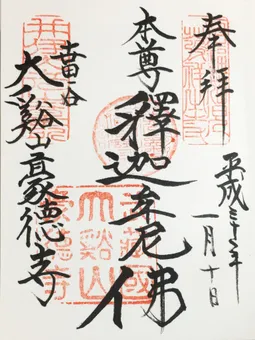 奉拝
平成三十一年
一月十日
本尊
釋迦牟尼佛
世田谷
大谿山豪德寺
武藏國
大谿山
豪德寺